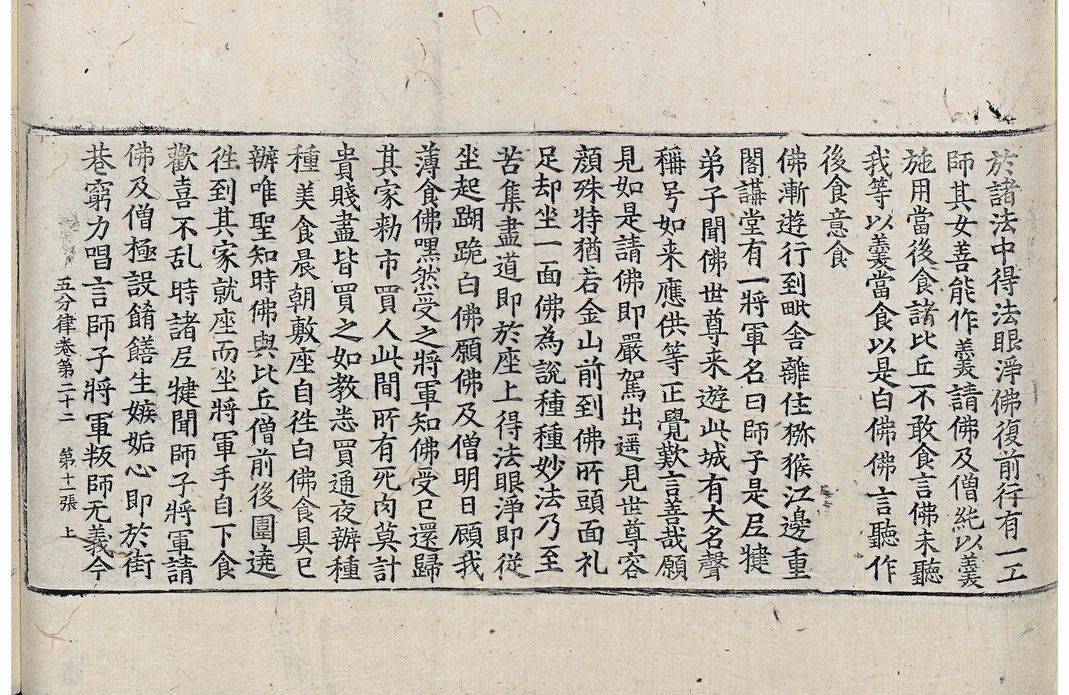 於諸法中得法眼淨佛復前行有一工
師其女善能作羹請佛及僧純以羹
施用當後食諸比丘不敢食言佛未聽
我等以羹當食以是白佛佛言聽作
後食意食
佛漸遊行到毗舍離住獼猴江邊重
閣講堂有一將軍名曰師子是尼揵
弟子聞佛世尊来遊此城有大名聲
稱号如来應供等正覺歎言善哉願
見如是請佛即嚴駕出遥見世尊容
顔殊特猶若金山前到佛所頭面礼
足却坐一面佛為說種種妙法乃至
苦集盡道即於座上得法眼淨即從
坐起𨁈跪白佛願佛及僧明日顧我
薄食佛嘿然受之將軍知佛受已還歸
其家勑市買人此間所有死肉莫計
貴賤盡皆買之如教悉買通夜辦種
種美食晨朝敷座自徃白佛食具已
辦唯聖知時佛與比丘僧前後圍遶
徃到其家就座而坐將軍手自下食
歡喜不乱時諸尼揵聞師子將軍請
佛及僧極設餚饍生嫉妬心即於街
五分律卷第二十二 第十一張 上
巷窮力唱言師子將軍叛師无義今